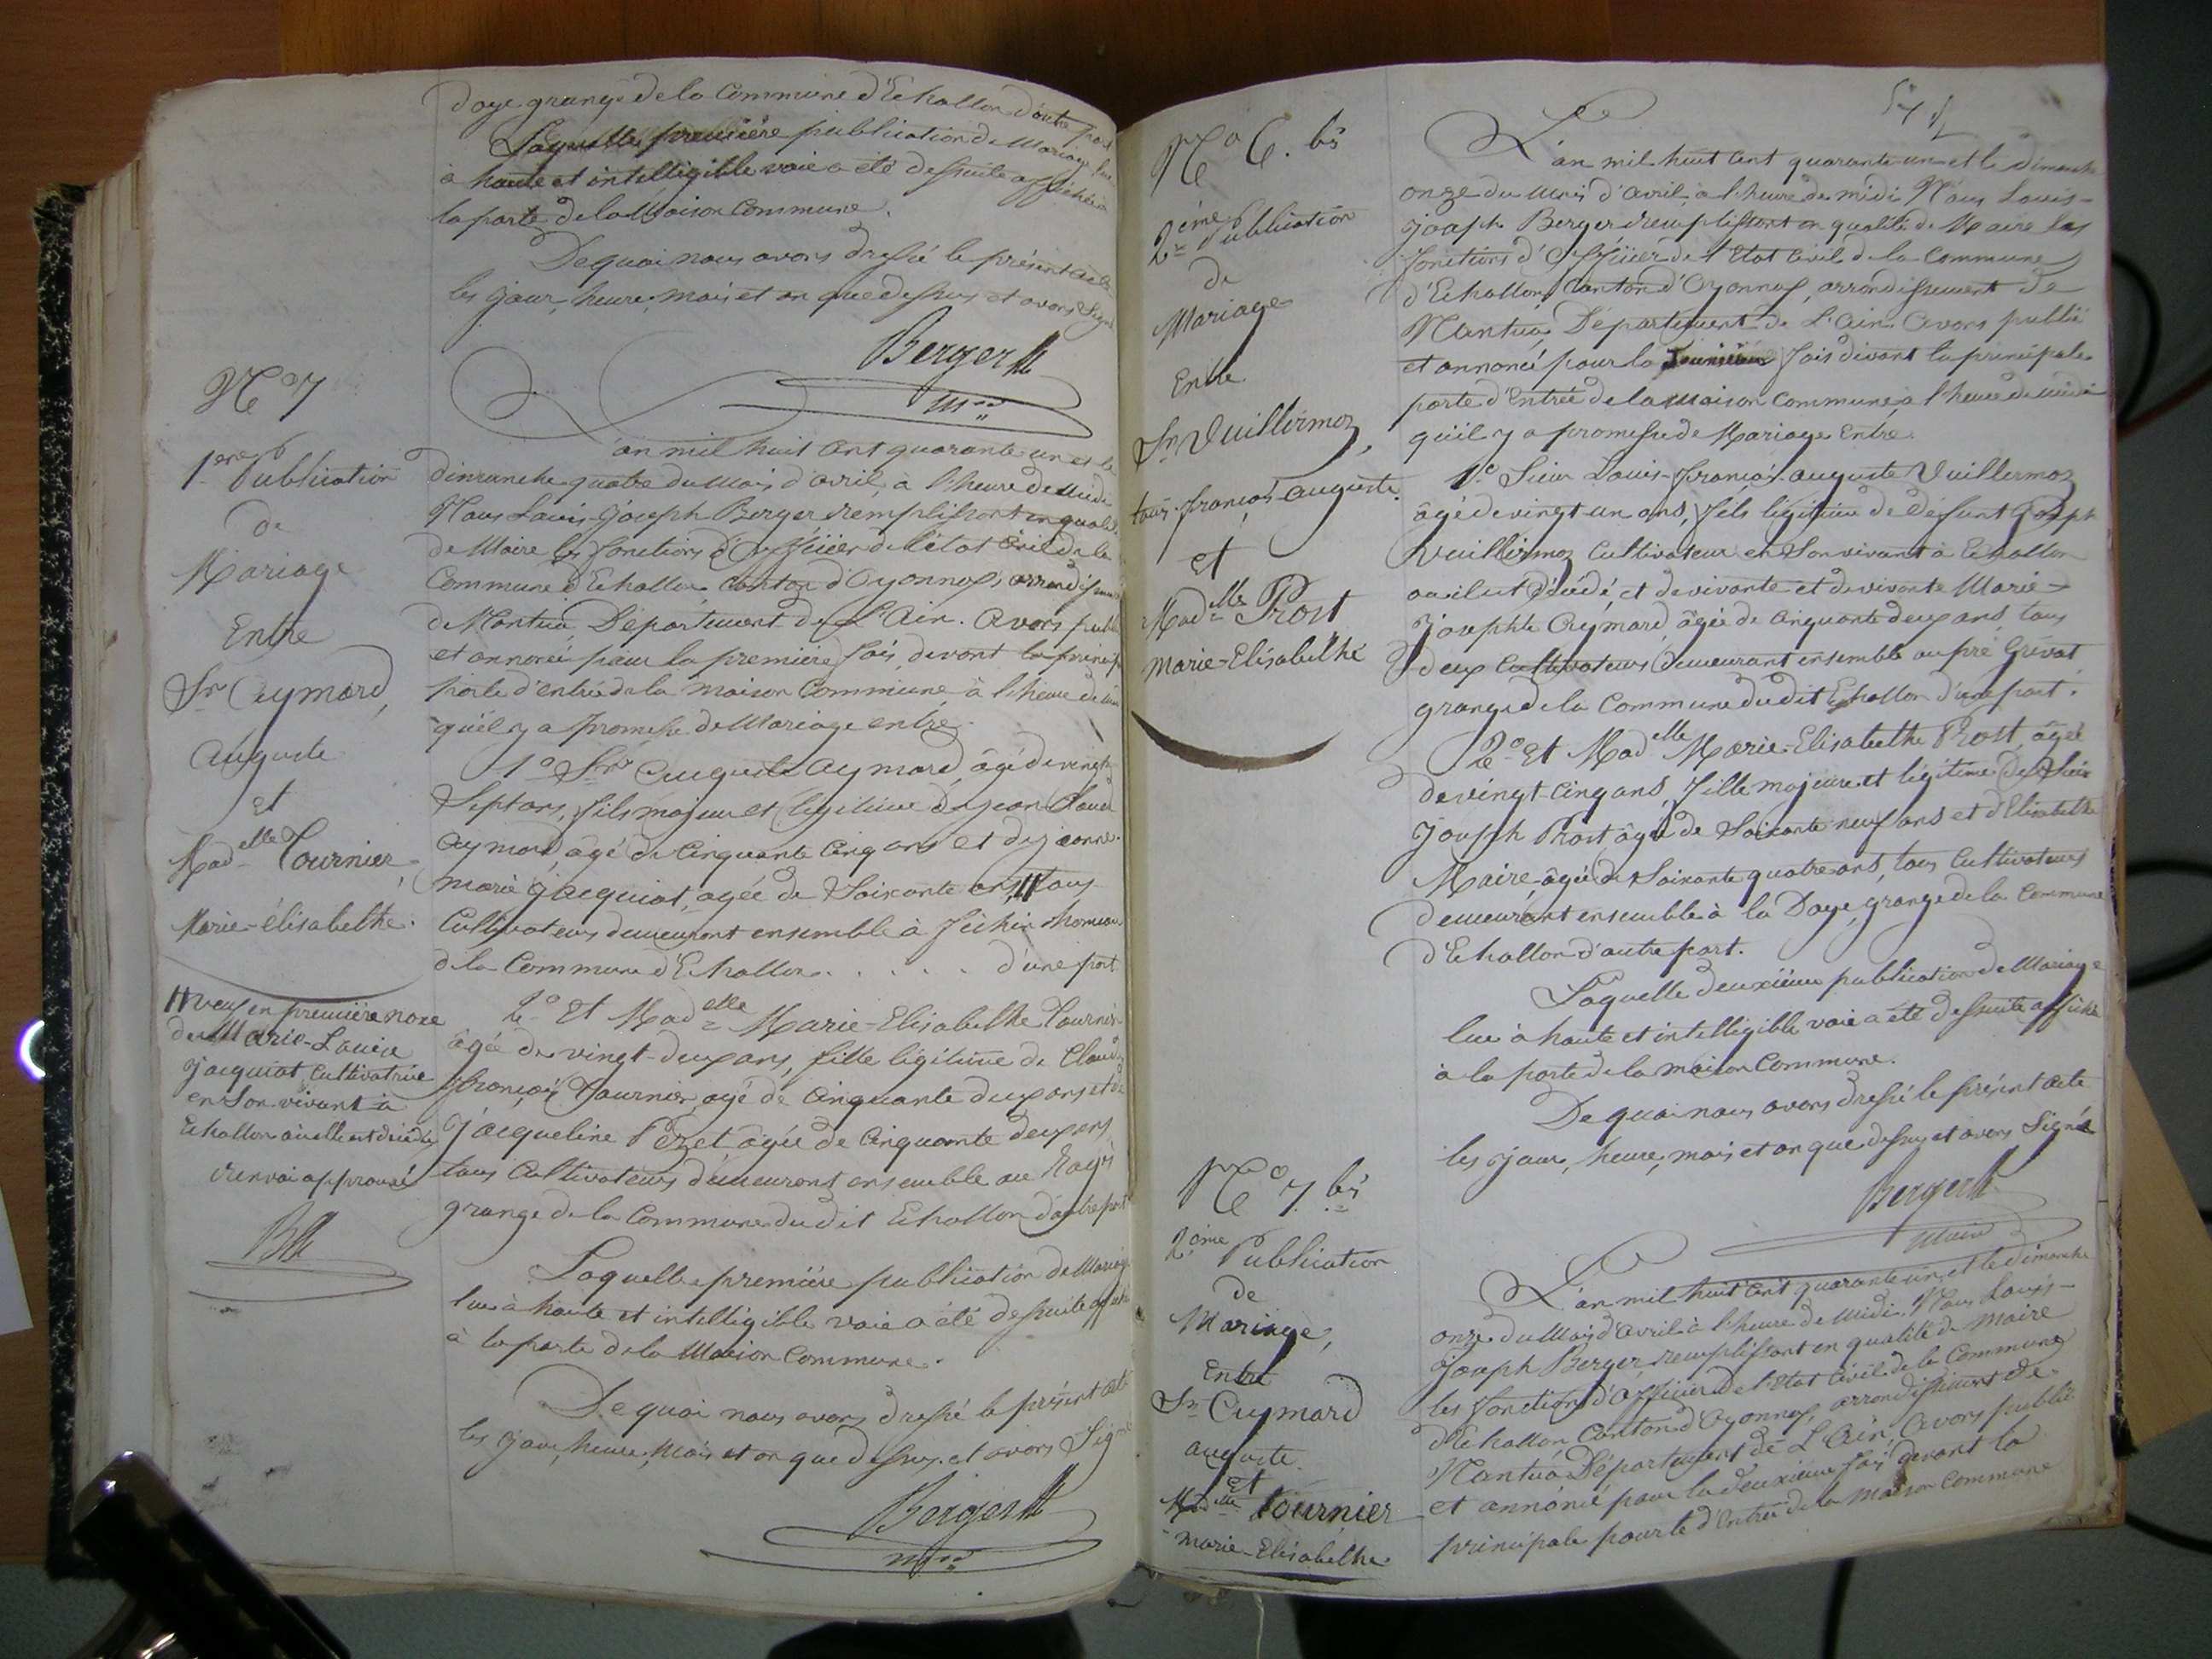 Daye grange de la Commune d'Echallon d'autre part
Laquelle première publication de Mariage lue
à haute et intelligible voie a été dessuite affichée à
la porte de la Maison Commune.
De quoi nous avons dressé le présent acte
les jour, heure, mois et an que dessus et avons signé
Berger
M.re
N.º 7
1.ere Publication
de
Mariage
Entre
S.r Aymard,
Auguste
et
Mad.elle Tournier,
Marie-élisabethe.
veuf en première noce
de Marie-Louise
Jacquiot Cultivatrice
en son vivant à
Echallon où elle est décédée
renvoi approuvé
L'an mil huit cent quarante un et le
dimanche quatre du Mois d'avril, à l'heure de Midi
Nous Louis-Joseph Berger remplissant en qualité
de Maire les fonctions d'Officier de l'état civil de la
Commune d'Echallon Canton d'Oyonnax, arrondissement
de Nantua, Département de l'Ain. Avons publié
et annoncé pour la première fois, devant la principale
porte d'entrée de la maison Commune, à l'heure de midi
qu'il y a promesse de Mariage entre.
1.º S.r Auguste Aymard, âgé de vingt
Sept ans, fils majeur et légitime de Jean Claude
Aymard, âgé de Cinquante Cinq ans et de Jeanne-
marie Jacquiot, âgée de Soixante ans, tous
Cultivateurs demeurant ensemble à hameau
de la Commune d'Echallon . . . . . d'une part
2.º Et Mad.elle Marie-Elisabethe Tournier
âgée de vingt-deux ans, fille légitime de Claude
françois Tournier, âgé de Cinquante deux ans et de
Jacqueline Perret âgée de Cinquante deux ans
tous Cultivateurs demeurant ensemble au
grange de la Commune du dit Echallon d'autre part
Laquelle première publication de Mariage
lue à haute et intelligible voie a été dessuite affichée
à la porte de la Maison Commune.
De quoi nous avons dressé le présent acte
les jour, heure, Mois et an que dessus et avons Signé
Berger
M.re
N.º 6. bis
2.ème Publication
de
Mariage
Entre
S.r Vuillermoz,
Louis-françois-auguste.
et
Mad.elle Prost
Marie-Elisabethe
L'an mil huit cent quarante-un et le dimanche
onze du Mois d'avril, à l'heure de midi Nous Louis-
Joseph Berger remplissant en qualité de Maire les
fonctions d'Officier de l'Etat Civil de la Commune
d'Echallon, Canton d'Oyonnax, arrondissement de
Nantua, Département de L'Ain. Avons publié
et annoncé pour la fois devant la principale
porte d'Entrée de la Maison Commune, à l'heure de midi
qu'il y a promesse de Mariage Entre.
1.º Sieur Louis-françois-auguste Vuillermoz
âgé de vingt-un ans, fils légitime de défunt Joseph
Vuillermoz Cultivateur en son vivant à Echallon
où il est décédé, et de vivante et de vivante Marie-
Josephte Aymard, âgée de Cinquante deux ans, tous
deux Cultivateurs demeurant ensemble au pré Grévat
grange de la Commune du dit Echallon d'une part.
2.º Et Mad.elle Marie-Elisabethe Prost, âgée
de vingt-cinq ans, fille majeure et légitime de Sieur
Joseph Prost âgé de Soixante neuf ans et d'Elisabethe
Maire, âgée de Soixante quatre ans, tous Cultivateurs
demeurant ensemble à la Daye, grange de la Commune
d'Echallon d'autre part.
Laquelle deuxième publication de Mariage
lue à haute et intelligible voie a été dessuite affichée
à la porte de la maison Commune.
De quoi nous avons dressé le présent acte
les jour, heure, mois et an que dessus et avons Signé
Berger
Maire
N.º 7. bis
2.ème Publication
de
Mariage,
Entre
S.r Aymard
auguste.
Et
Mad.elle Tournier
marie-Elisabethe
L'an mil huit cent quarante un, et le dimanche
onze du Mois d'avril à l'heure de Midi. Nous Louis-
Joseph Berger, remplissant en qualité de Maire
les fonctions d'Officier de l'Etat Civil de la Commune
d'Echallon, Canton d'Oyonnax, arrondissement de
Nantua, Département de L'Ain, Avons publié
et annoncé pour la deuxième fois devant la
principale pourte d'Entrée de la Maison Commune